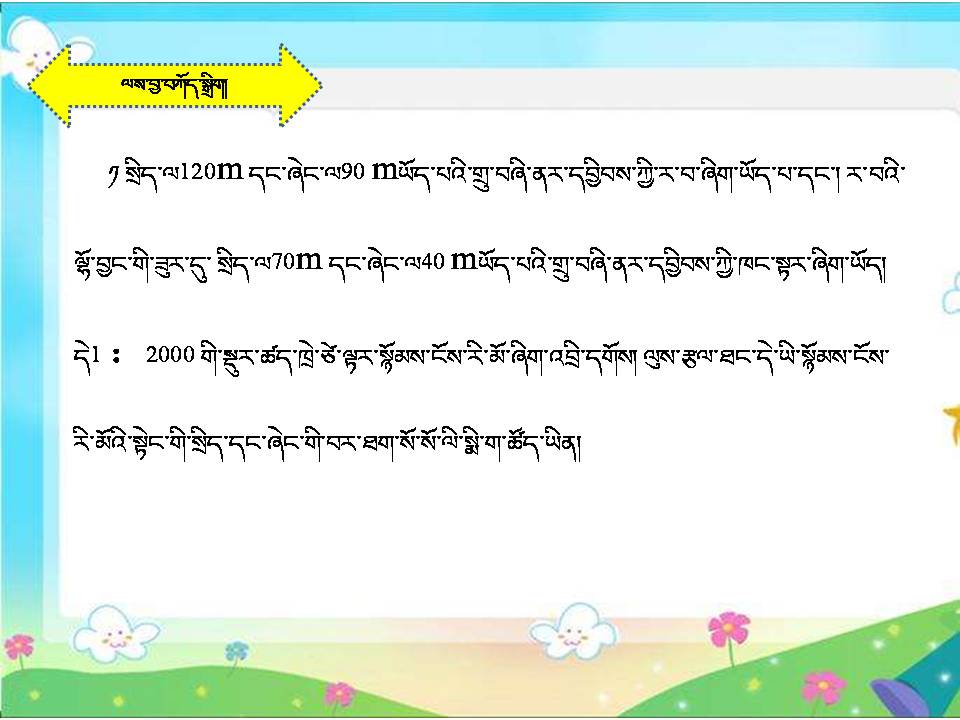 ལས་བྱ་བཀོད་སྒྲིག
༡ སྲིད་ལ120m དང་ཞེང་ལ90 mཡོད་པའི་གྲུ་བཞི་ནར་དབྱིབས་ཀྱི་ར་བ་ཞིག་ཡོད་པ་དང་། ར་བའི་
ལྷོ་བྱང་གི་ཟུར་དུ་ སྲིད་ལ70m དང་ཞེང་ལ40 mཡོད་པའི་གྲུ་བཞི་ནར་དབྱིབས་ཀྱི་ཁང་སྟར་ཞིག་ཡོད།
དེ1： 2000 གི་སྡུར་ཚད་ཁྲེ་ཙེ་ལྟར་སྙོམས་ངོས་རི་མོ་ཞིག་འབྲི་དགོས། ལུས་རྩལ་ཐང་དེ་ཡི་སྙོམས་ངོས་
རི་མོའི་སྟེང་གི་སྲིད་དང་ཞེང་གི་བར་ཐག་སོ་སོ་ལི་སྨི་ག་ཚོད་ཡིན།